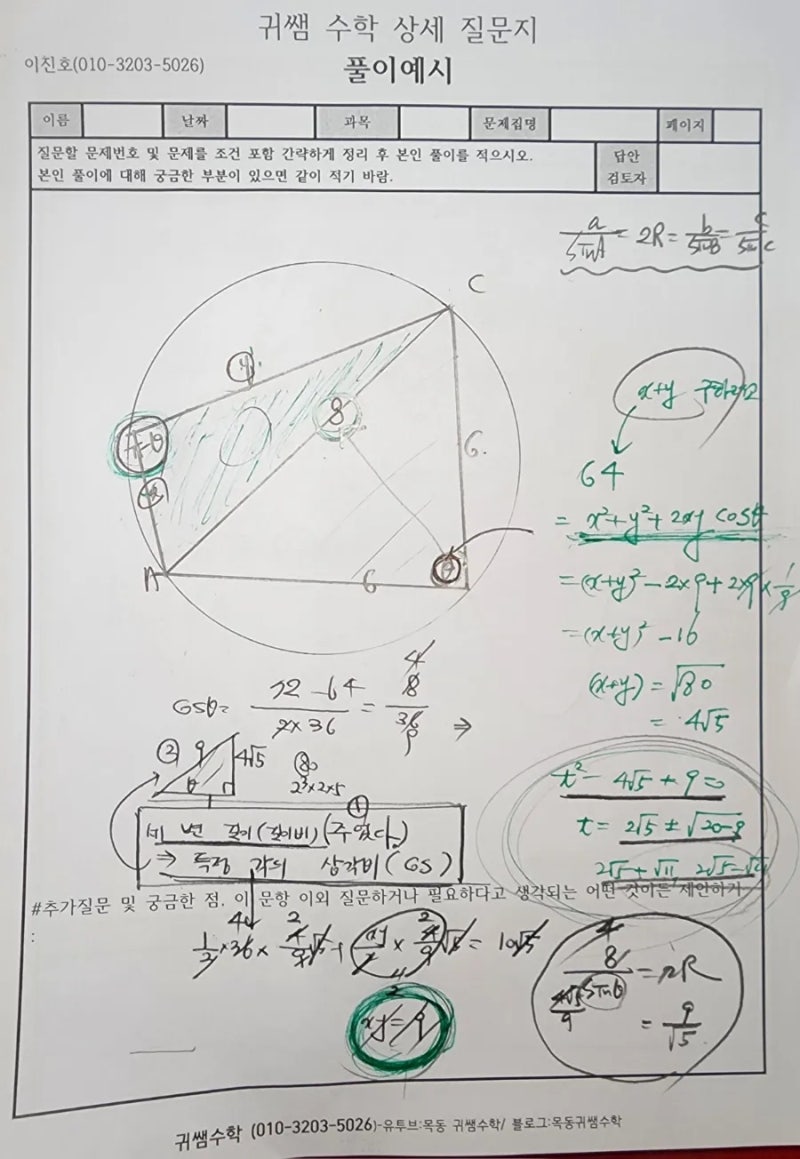 귀쌤 수학 상세 질문지
이진호(010-3203-5026)
풀이예시
이름 날짜 과목 문제집명 페이지
질문할 문제번호 및 문제를 조건 포함 간략하게 정리 후 본인 풀이를 적으시오.
본인 풀이에 대해 궁금한 부분이 있으면 같이 적기 바람.
답안
검토자
a/sinA = 2R = b/sinB = c/sinC
C
8
π-θ
6.
A
6
θ
x+y 구하라고
64
= x²+y²+2xy cosθ
= (x+y)² - 2×9 + 2×9 × 1/9
= (x+y)² - 16
(x+y) = √80
= 4√5
cosθ = 72-64 / 2×36 = 8/36 ⇒
4
9
② 9 4√5
θ
80
2³×2×5
①
세 변 길이(길이비) (주었다.)
⇒ 특정 각의 삼각비(cos)
t² - 4√5 + 9 = 0
t = 2√5 ± √20-9
2√5 + √11, 2√5 - √11
#추가질문 및 궁금한 점. 이 문항 이외 질문하거나 필요하다고 생각되는 어떤 것이든 제안하기
:
1/2 × 36 × 4/9 √5 + xy/2 × 4/9 √5 = 10√5
xy = 9
8 / sinθ = 2R
4√5/9
= 9/√5
귀쌤수학 (010-3203-5026)-유투브:목동 귀쌤수학/ 블로그:목동귀쌤수학